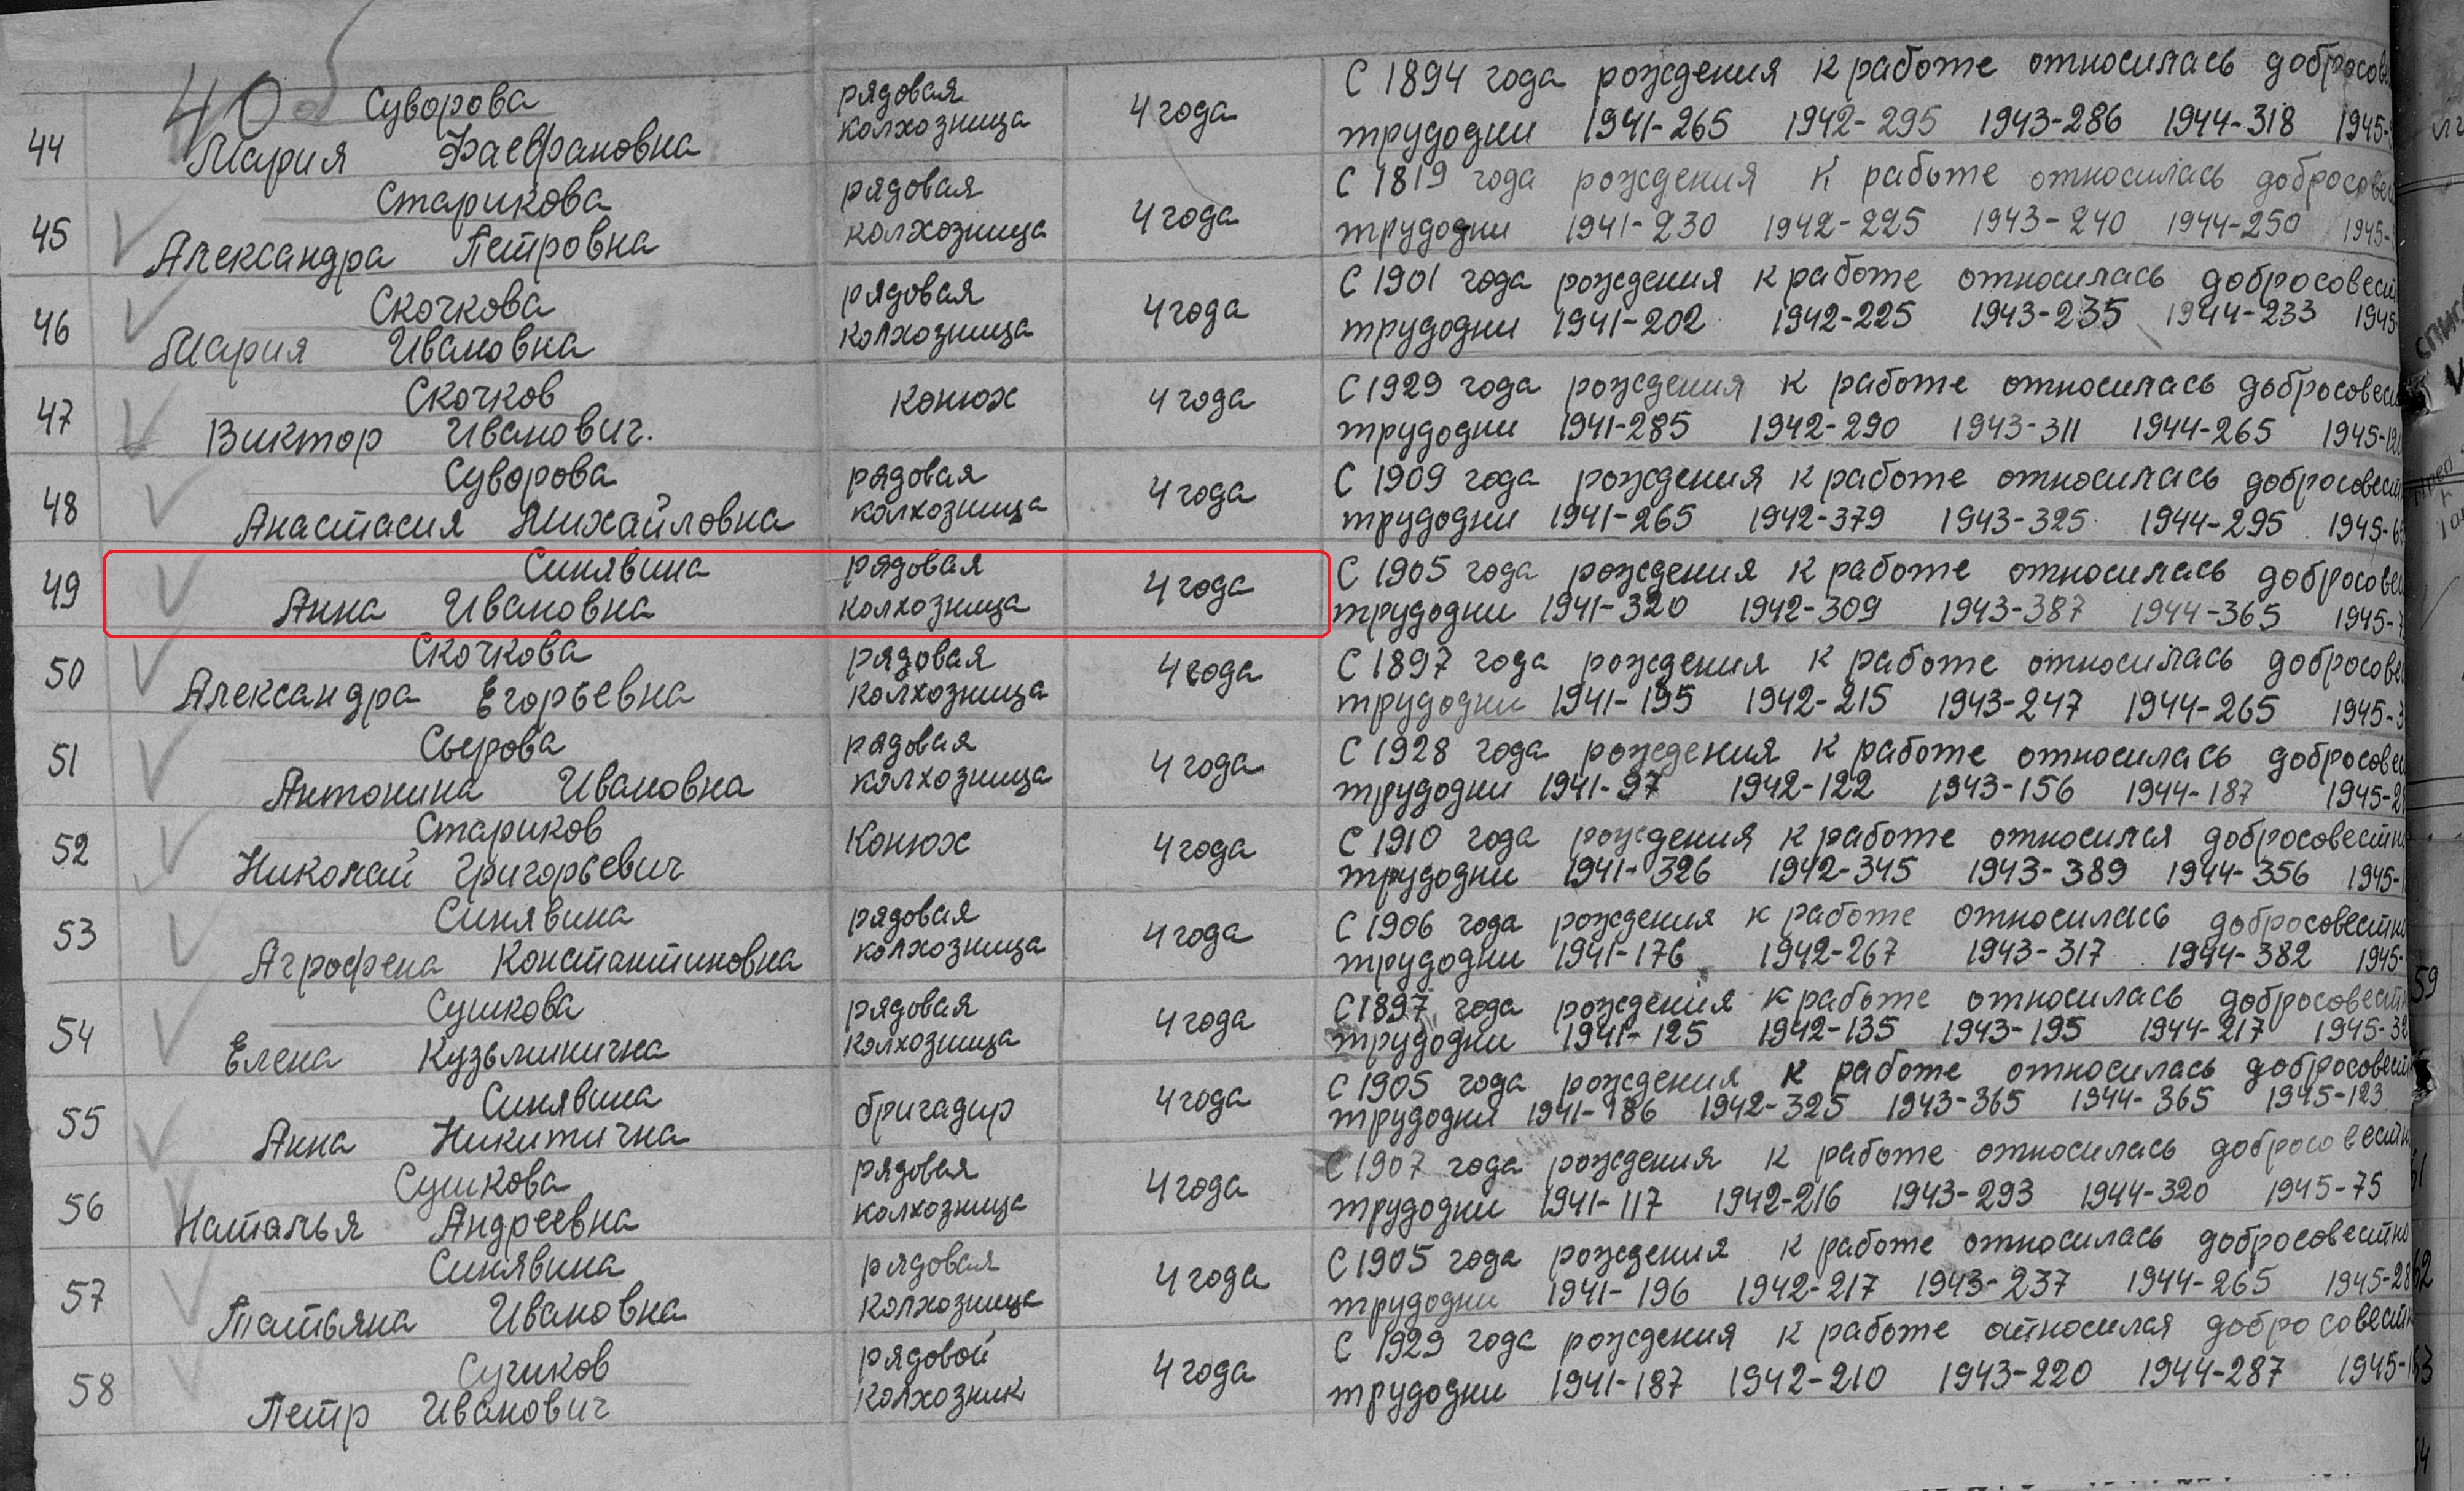 40 об
44 Суворова рядовая 4 года С 1894 года рождения к работе относилась добросов
Мария колхозница трудодни 1941-265 1942-295 1943-286 1944-318 1945-
45 Старикова рядовая 4 года С 1819 года рождения К работе относилась добросовес
Александра Петровна колхозница трудодни 1941-230 1942-225 1943-240 1944-250 1945-
46 Скочкова рядовая 4 года С 1901 года рождения к работе относилась добросовест
Мария Ивановна колхозница трудодни 1941-202 1942-225 1943-235 1944-233 1945-
47 Скочков Конюх 4 года С 1929 года рождения к работе относилась добросовес
Виктор Иванович. трудодни 1941-285 1942-290 1943-311 1944-265 1945-
48 Суворова рядовая 4 года С 1909 года рождения к работе относилась добросовест
Анастасия Михайловна колхозница трудодни 1941-265 1942-379 1943-325 1944-295 1945-
49 Синявина рядовая 4 года С 1905 года рождения к работе относилась добросовес
Анна Ивановна колхозница трудодни 1941-320 1942-309 1943-387 1944-365 1945-
50 Скочкова рядовая 4 года С 1897 года рождения к работе относилась добросовес
Александра Егорьевна колхозница трудодни 1941-195 1942-215 1943-247 1944-265 1945-3
51 Сьерова рядовая 4 года С 1928 года рождения к работе относилась добросовес
Антонина Ивановна колхозница трудодни 1941-97 1942-122 1943-156 1944-187 1945-2
52 Стариков Конюх 4 года С 1910 года рождения к работе относился добросовестно
Николай Григорьевич трудодни 1941-326 1942-345 1943-389 1944-356 1945-
53 Синявина рядовая 4 года С 1906 года рождения к работе относилась добросовестно
Агрофена Константиновна колхозница трудодни 1941-176 1942-267 1943-317 1944-382 1945-
54 Сушкова рядовая 4 года С 1897 года рождения к работе относилась добросовест
Елена Кузьминична колхозница трудодни 1941-125 1942-135 1943-195 1944-217 1945-32
55 Синявина бригадир 4 года С 1905 года рождения к работе относилась добросовест
Анна Никитична трудодни 1941-186 1942-325 1943-365 1944-365 1945-123
56 Сушкова рядовая 4 года С 1907 года рождения к работе относилась добросовестн
Наталья Андреевна колхозница трудодни 1941-117 1942-216 1943-293 1944-320 1945-75
57 Синявина рядовая 4 года С 1905 года рождения к работе относилась добросовестно
Татьяна Ивановна колхозница трудодни 1941-196 1942-217 1943-237 1944-265 1945-28
58 Сучков рядовой 4 года С 1929 года рождения к работе относился добросовестн
Петр Иванович колхозник трудодни 1941-187 1942-210 1943-220 1944-287 1945-
59